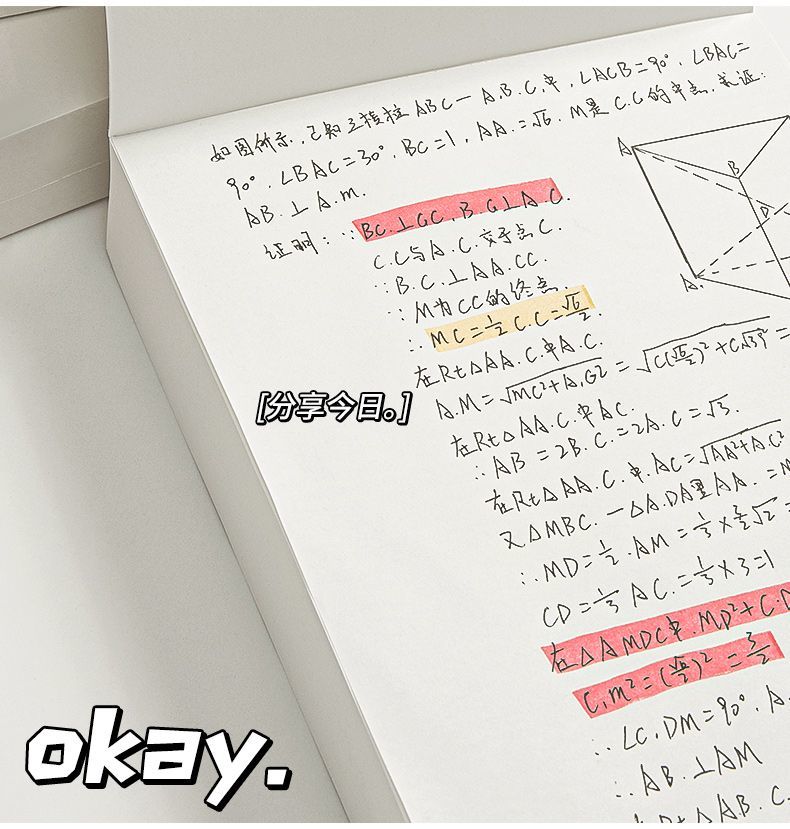 如图所示,已知三棱柱ABC-A.B.C.中,∠ACB=90°,∠BAC=
90°,∠BAC=30°,BC=1,AA.=√6.M是C.C的中点,求证:
AB.⊥A.m.
证明:∵BC.⊥GC,B.C⊥A.C.
C.C与A.C.交于点C.
∵B.C.⊥AA.CC.
∵M为CC的终点.
∴MC=1/2C.C=√6/2
在Rt△AA.C.中A.C.
A.M=√MC²+A.G² = √C(√6/2)²+C√3)² =
在Rt△AA.C.中AC.
∴AB=2B.C.=2A.C=√3.
在Rt△AA.C.中.AC=√AA²+AC²
又△MBC.-△A.DA里AA.=M
∴MD=1/2.AM=1/3×3/2√2=
CD=1/3AC.=1/3×3=1
在△AMDC中.MD²+C.D
C.m²=(√6/2)²=3/2
∴∠C.DM=90°.A.
∴AB.⊥AM
Rt△AB.C.
A
B
D
A.
[分享今日。]
okay.